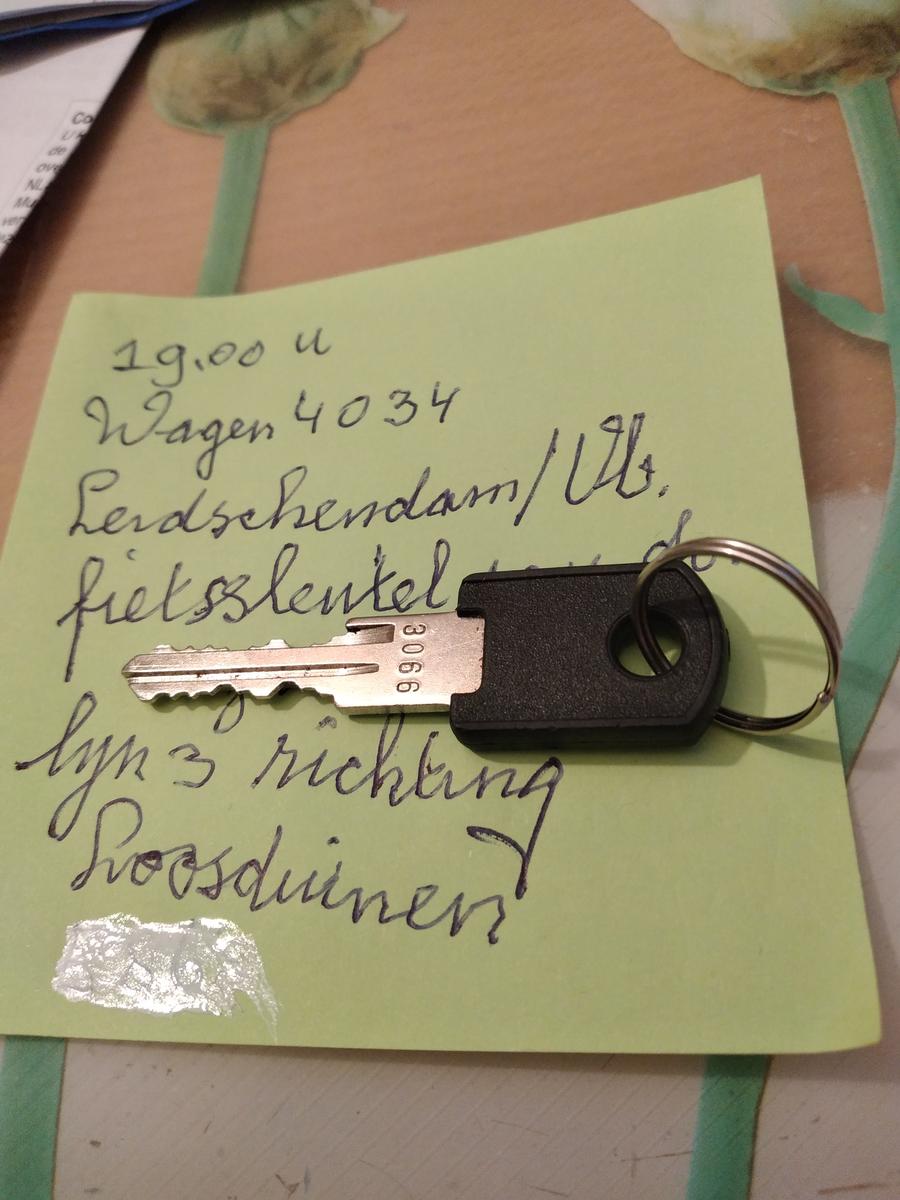 Co
de
NL
19.00 u
Wagen 4034
Leidschendam/Vb.
fietssleutel
3066
lyn 3 richting
Loosduinen